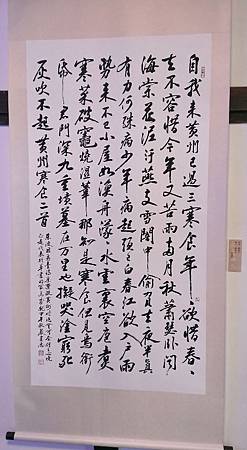 自我来黄州已過三寒食年々欲惜春春
去不容惜今年又苦雨兩月秋蕭瑟卧聞
海棠花泥汙燕支雪闇中偷負去夜半真
有力何殊病少年病起頭已白春江欲入戶雨
勢来不已小屋如漁舟濛々水雲裏空庖煮
寒菜破竈燒溼葦那知是寒食但見烏銜
帋君門深九重墳墓在万里也擬哭塗窮死
灰吹不起黄州寒食二首